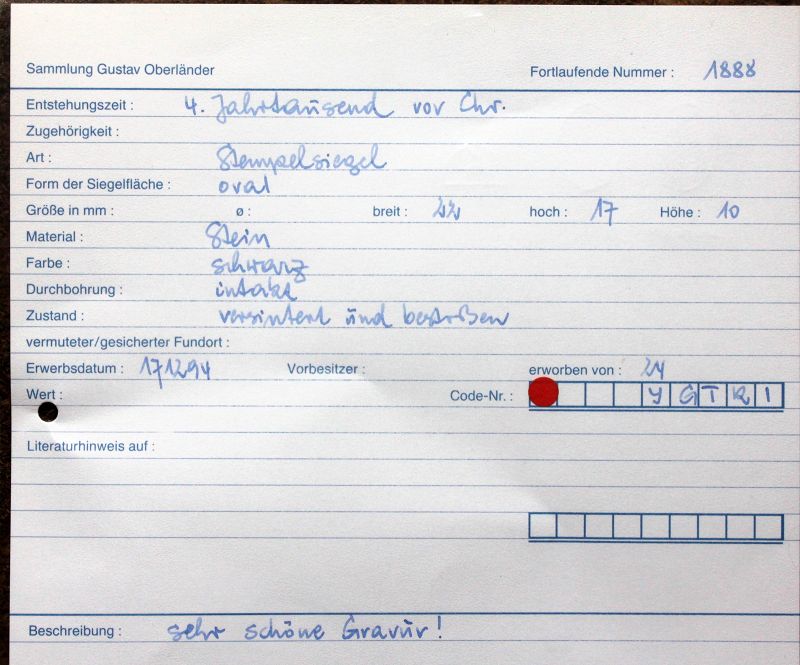 Sammlung Gustav Oberländer Fortlaufende Nummer : 1888
Entstehungszeit : 4. Jahrtausend vor Chr.
Zugehörigkeit :
Art : Stempelsiegel
Form der Siegelfläche : oval
Größe in mm : ø : breit : 22 hoch : 17 Höhe : 10
Material : Stein
Farbe : schwarz
Durchbohrung : intakt
Zustand : versintert und bestoßen
vermuteter/gesicherter Fundort :
Erwerbsdatum : 171294 Vorbesitzer : erworben von : 24
Wert : Code-Nr. : Y G T R I
Literaturhinweis auf :
Beschreibung : sehr schöne Gravur !